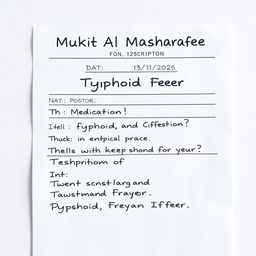 Mukit Al Masharafee
FON, 123CRIPTON
DAT: 13/11/2025
Tyiphoid Feeer
NAT: POSTOR:
Th: Medication!
Itell: fyphoid, and Ciffestion?
Thuck: in entpical prace.
Thells with keep shond for yeur?
Teshpritiom of
Int:
Twent scnstlargand
Tawstmand Frayer.
Pypshoid, Freyan Iffeer.